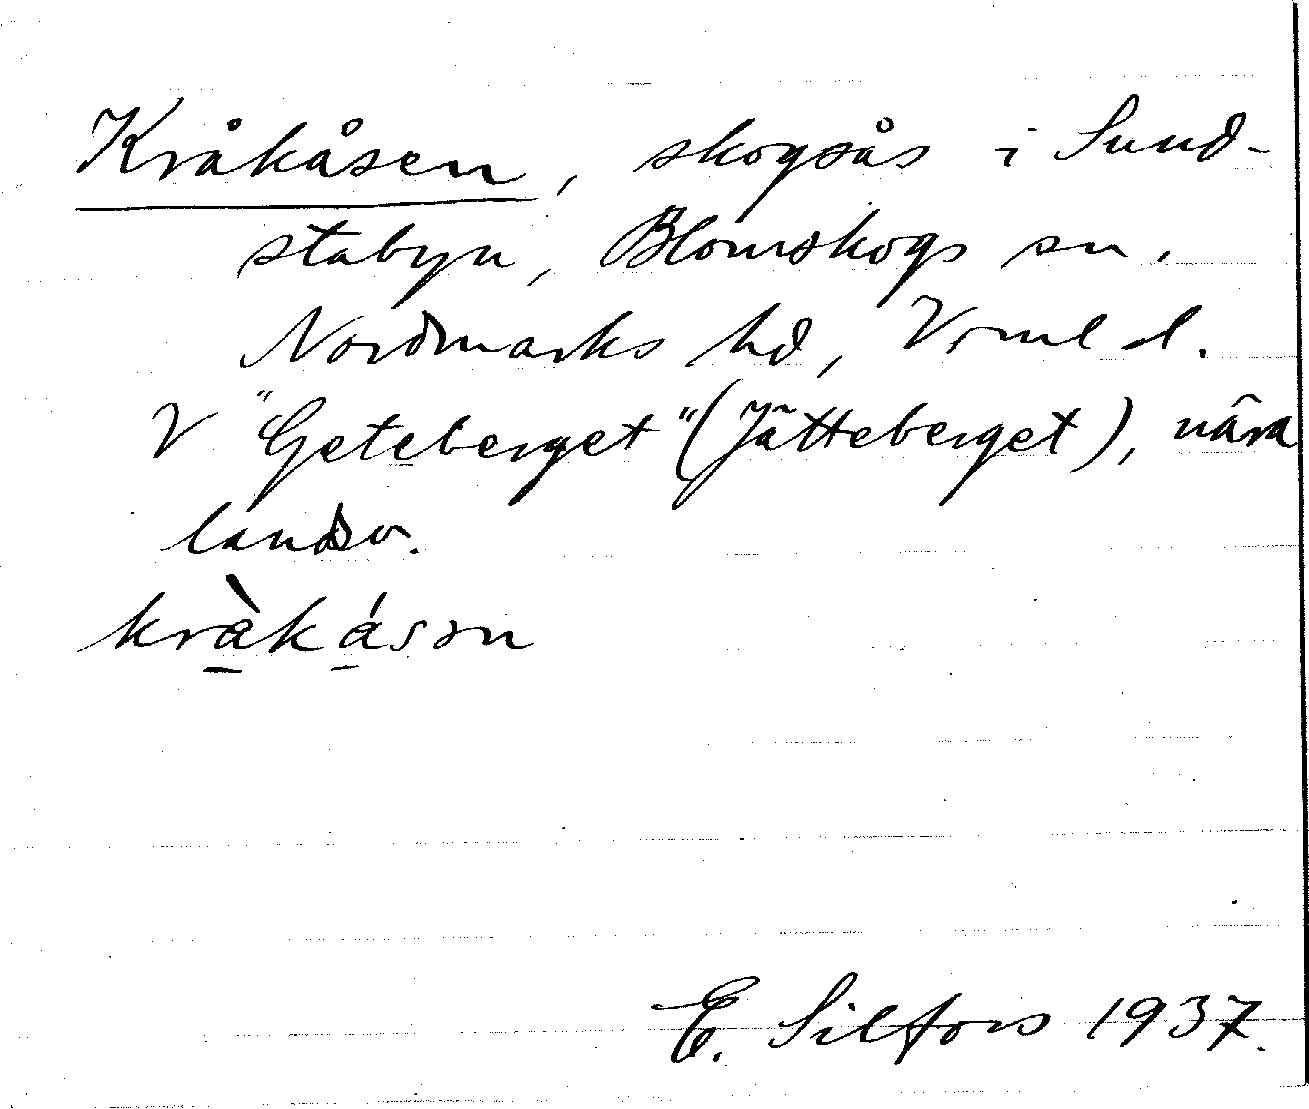 Kråkåsen, skogsås i Sund-
stabyn, Blomskogs sn,
Nordmarks hd, Vrml d.
V "Geteberget" (Jätteberget), nära
landsv.
kràkásən
E. Silfors 1937.